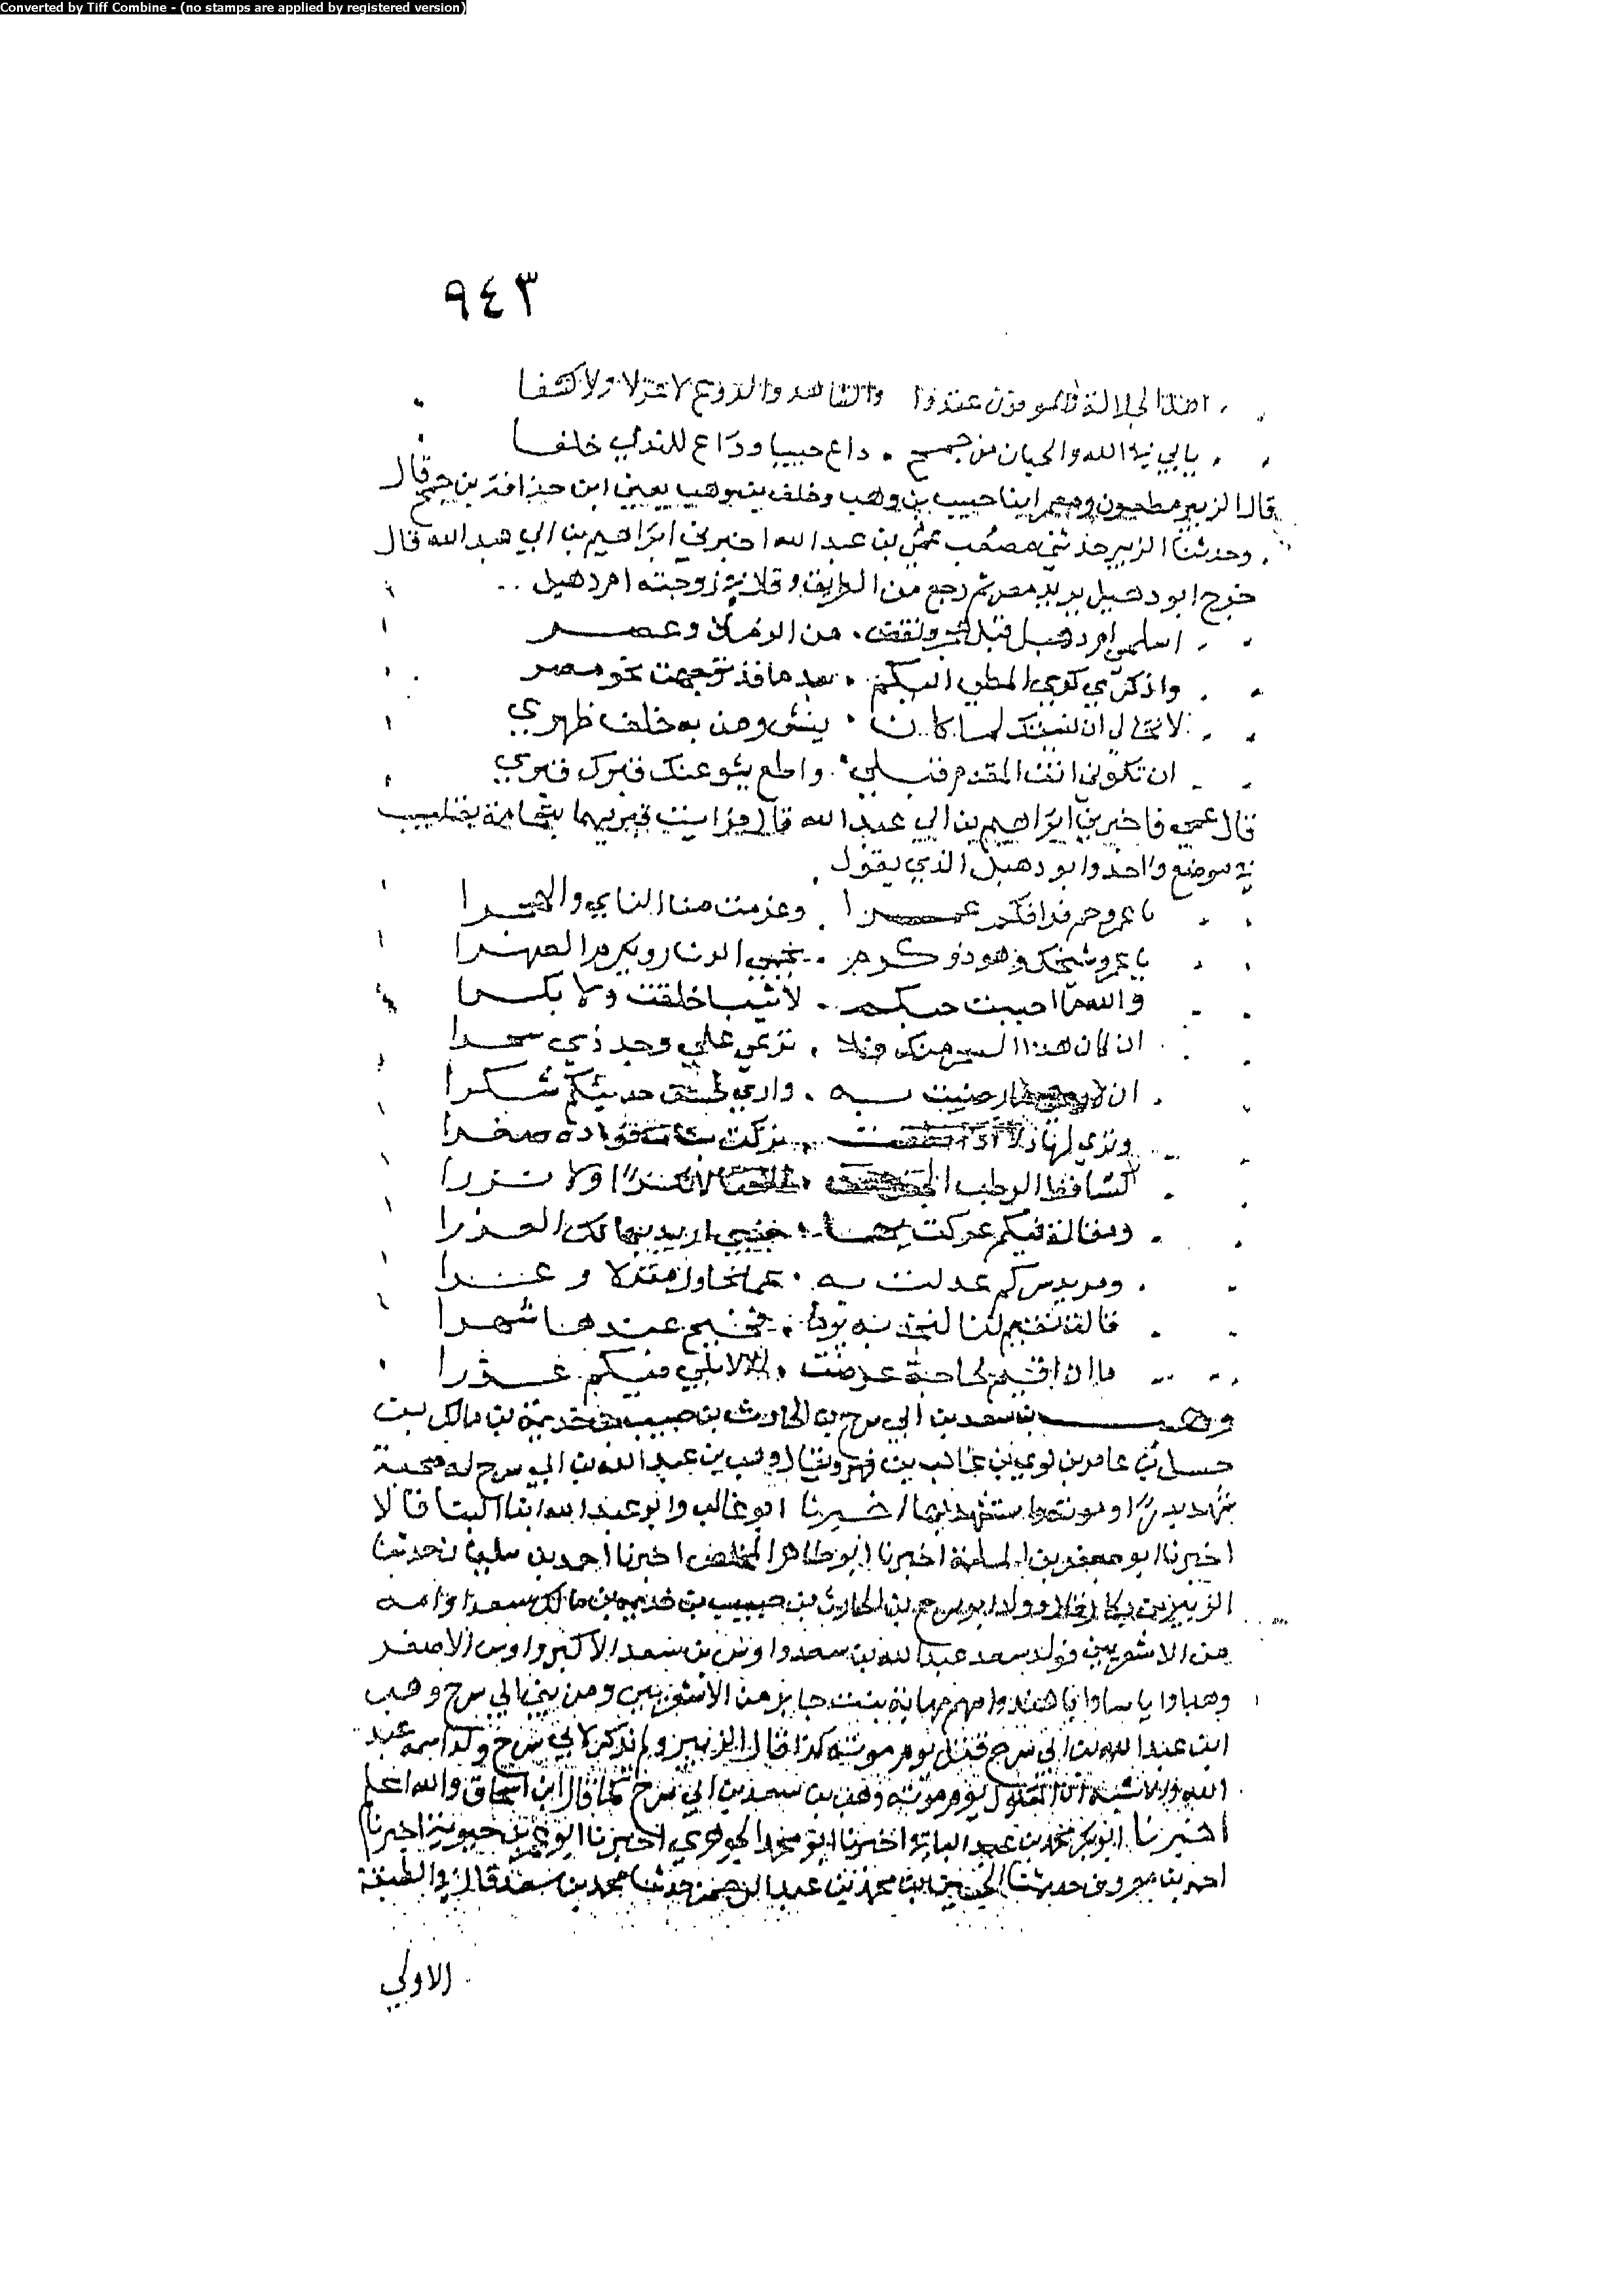 Converted by Tiff Combine - (no stamps are applied by registered version)
٩٤٣
والموفون عندوا لا عزلا ولا كشفا
يابي الله والحيان من جمح . داع حبيبا وداع للندي خلفا
قال الزبير مطعون ومعمر ابنا حبيب بن وهب وخلف بن وهب يعني ابن حذافة بن جمح قال
وحدثنا الزبير حدثني مصعب بن عبد الله اخبرني ابراهيم بن ابي عبد الله قال
خرج ابو دهبل يريد مصر ثم رجع من الطريق و زوجته ام دهبل
اسلمي ام دهبل قبل . من الزمان وعصر
واذكري كري المطي اليكم . بعد ما قد توجهت نحو مصر
لا تخالي ان نسيتك لما كان . ومن به خلف ظهري
ان تكوني انت المقدم قبلي . واطع عنك قبرك قبري
قال عمي فاخبرني ابراهيم بن ابي عبد الله قال فرايت قبريهما بتهامة
في موضع واحد وابو دهبل الذي يقول
يا عمرو حم فراقكم عمرا . وعزمت منا الناي والهجرا
يا عمرو شيخك وهو ذو كرم . يحمي الذمار ويكرم الصهرا
والله ما احببت حبكم . لا ثيبا خلقت ولا بكرا
ان كان هذا السحر منك فلا . ترعي علي وجددي سحرا
به . واري حديثكم شكرا
وتري لها دلا اذا . تركت فؤاده صعرا
كتساقط الرطب . ولا نزرا
ومقالة فيكم عركت بها . جنبي اريد بها لك العذرا
ومريد سركم عدلت به . عما يحاول معدلا وعرا
قالت يقيم لنا لنجزيه يوما . فخيم عندها شهرا
ما ان اقيم لحاجة عرضت . الا لابلي فيكم عذرا
وهب بن سعد بن ابي سرح بن الحارث بن حبيب بن خذيمة بن مالك بن
حسل بن عامر بن لوي بن غالب بن فهر ويقال وهب بن عبد الله بن ابي سرح له صحبة
شهد بدرا وموته واستشهد بها اخبرنا ابو غالب وابو عبد الله ابنا البنا قالا
اخبرنا ابو جعفر بن المسلمة اخبرنا ابو طاهر المخلص اخبرنا احمد بن سليمان حدثنا
الزبير بن بكار قال وولد ابو سرح بن الحارث بن حبيب بن خذيمة بن مالك سعدا وامه
من الاشعريين فولد سعد عبد الله بن سعد واوس بن سعد الاكبر واوس الاصغر
وهبا وايا هند وامهم مهانة بنت جابر من الاشعريين ومن بني ابي سرح وهب
ابن عبد الله بن ابي سرح قتل يوم موته كذا قال الزبير ولم يذكر لابي سرح ولدا اسمه عبد
الله والاشبه ان المقتول يوم موته وهب بن سعد بن ابي سرح كما قال ابن اسحاق والله اعلم
اخبرنا ابو بكر محمد بن عبد الباقي اخبرنا ابو محمد الجوهري اخبرنا ابو عمر بن حيويه اخبرنا
احمد بن معروف حدثنا الحسين بن محمد بن عبد الرحمن حدثنا محمد بن سعد قال في الطبقة
الاولي